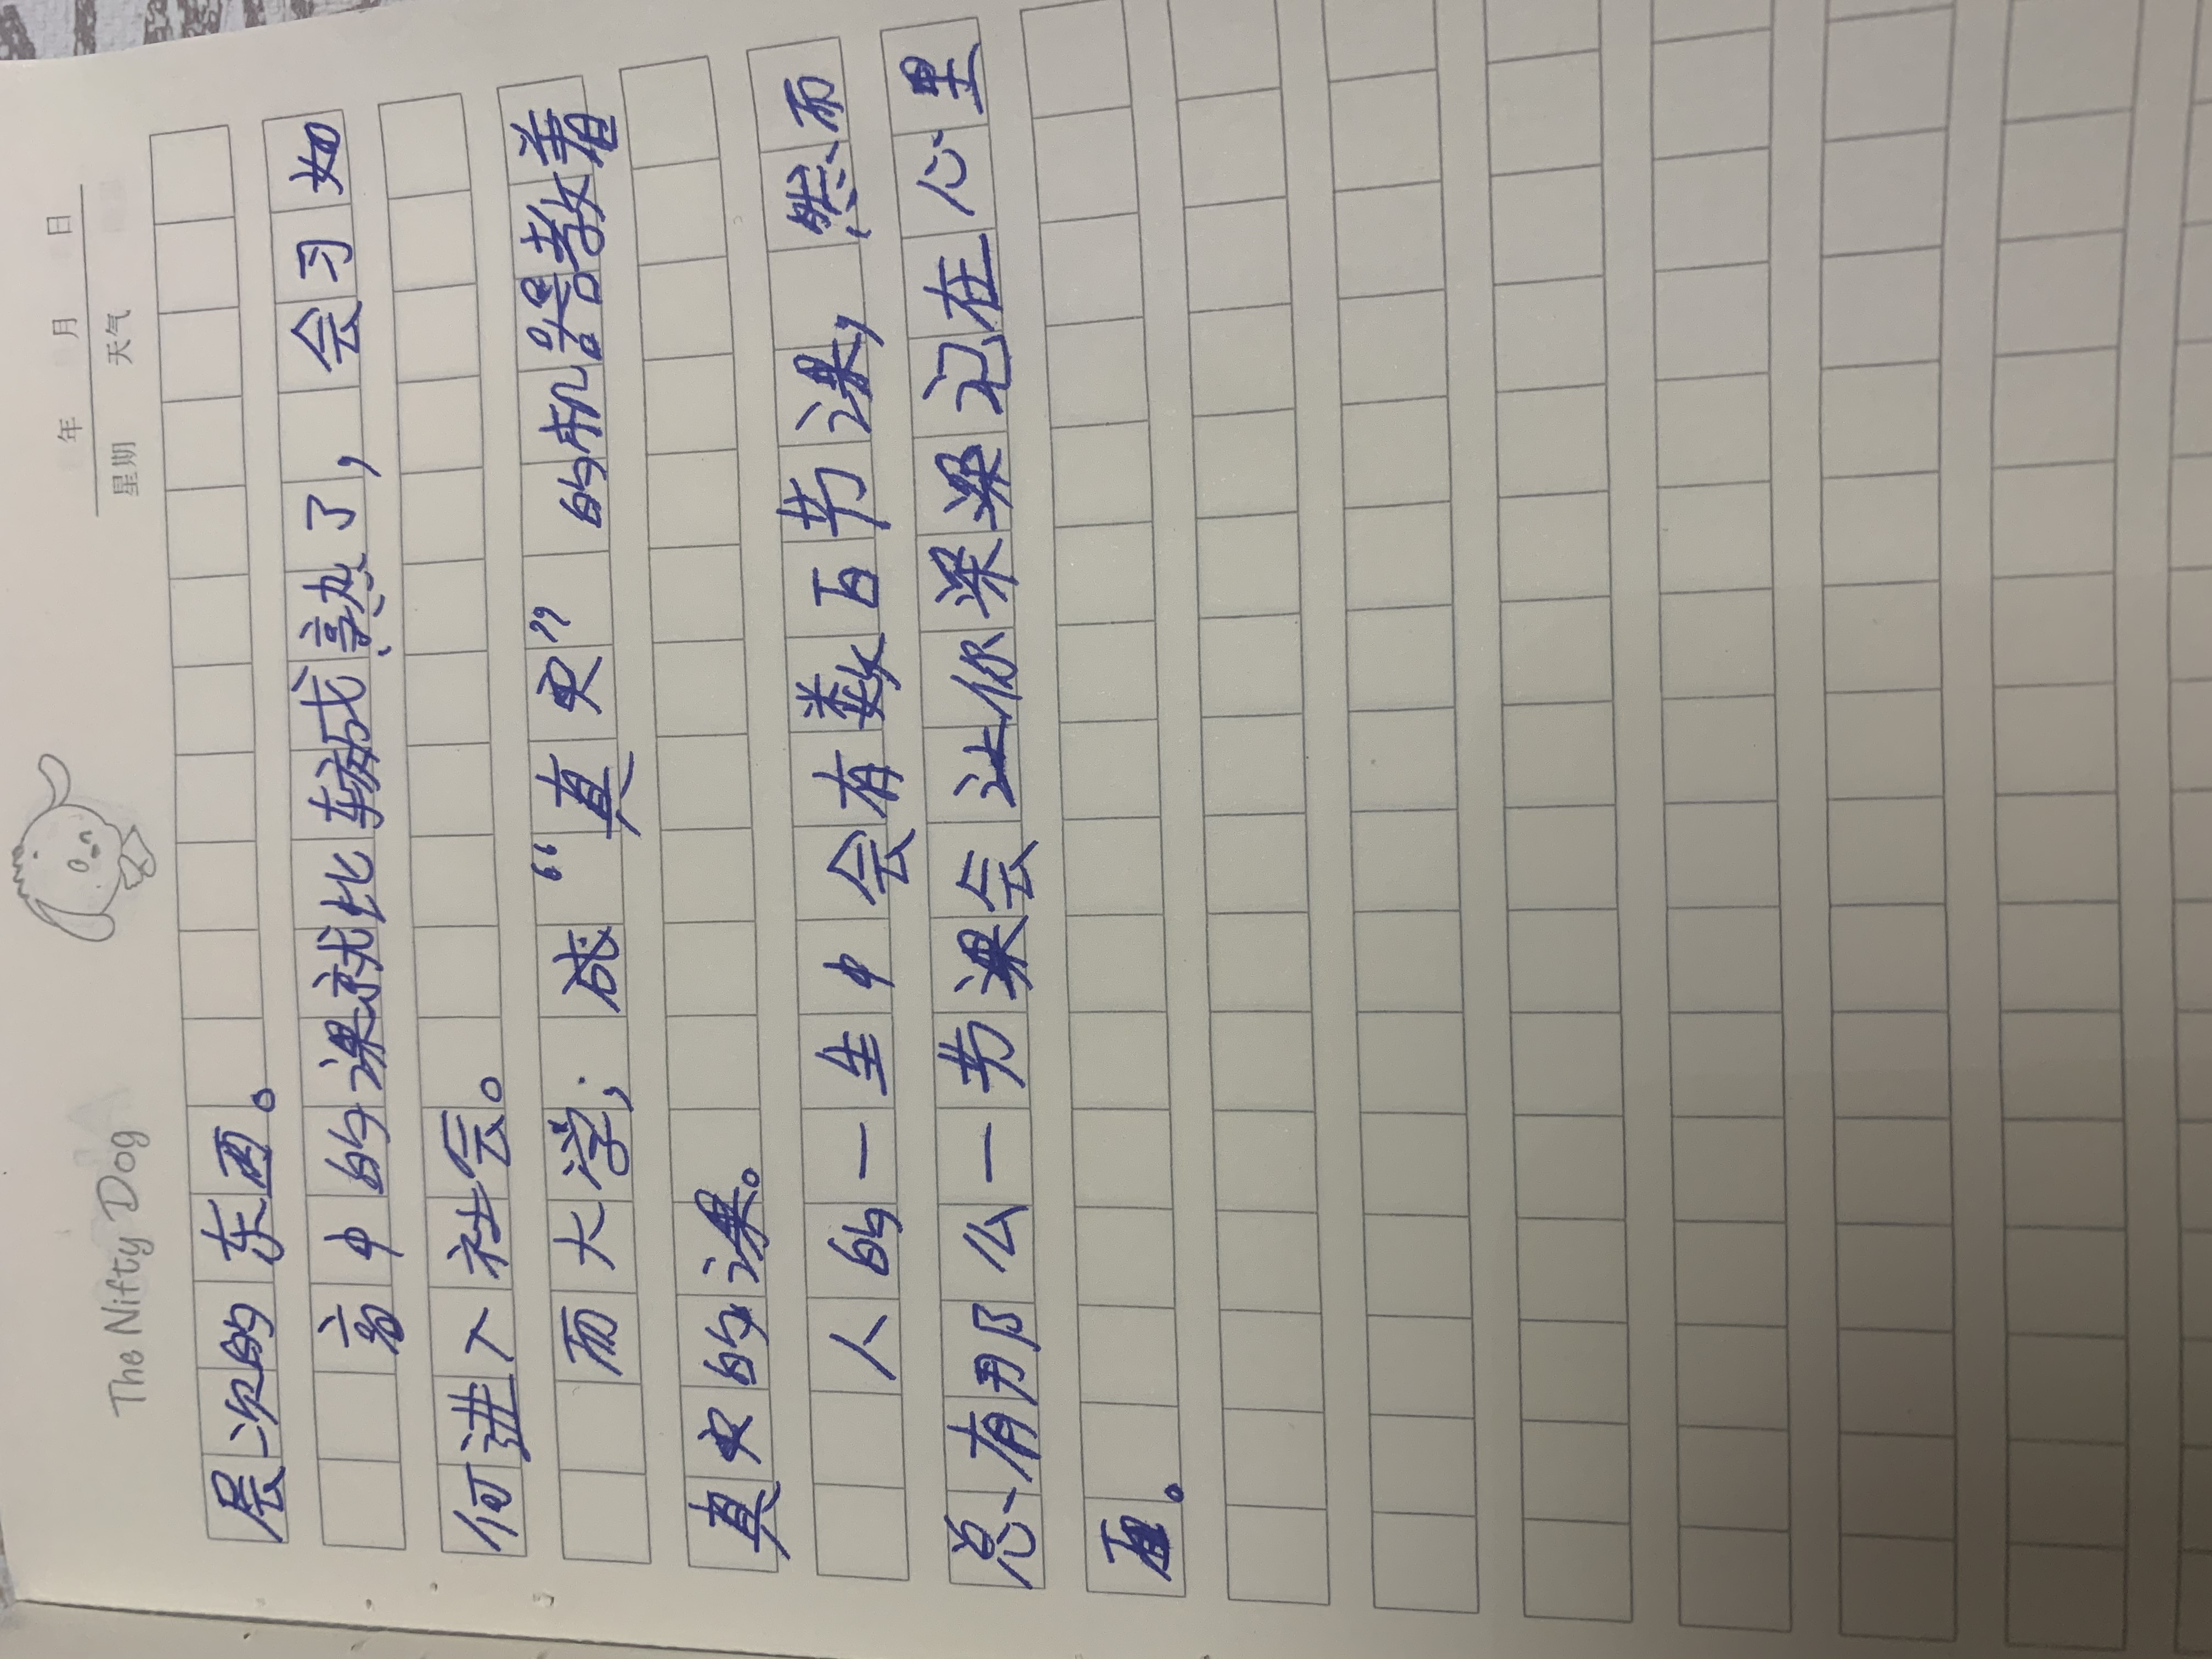 年 月 日
星期 天气
The Nifty Dog
层次的东西。
高中的课就比较成熟了，会习如
何进入社会。
而大学；成“真实”的机器教着
真实的课。
人的一生中会有数百节课，然而
总有那么一节课会让你深深记在心里
面。